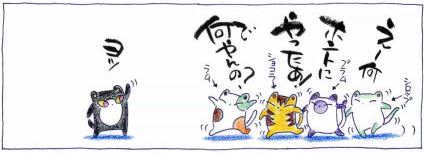 えー何
シロップ
ホントに
プラム
やったあ!
ショコラ
で何やんの?
ラム
ヨッ